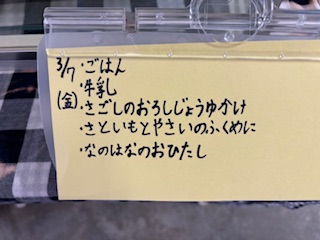 3/7 ・ごはん
・牛乳
(金) ・さごしのおろしじょうゆかけ
・さといもとやさいのふくめに
・なのはなのおひたし